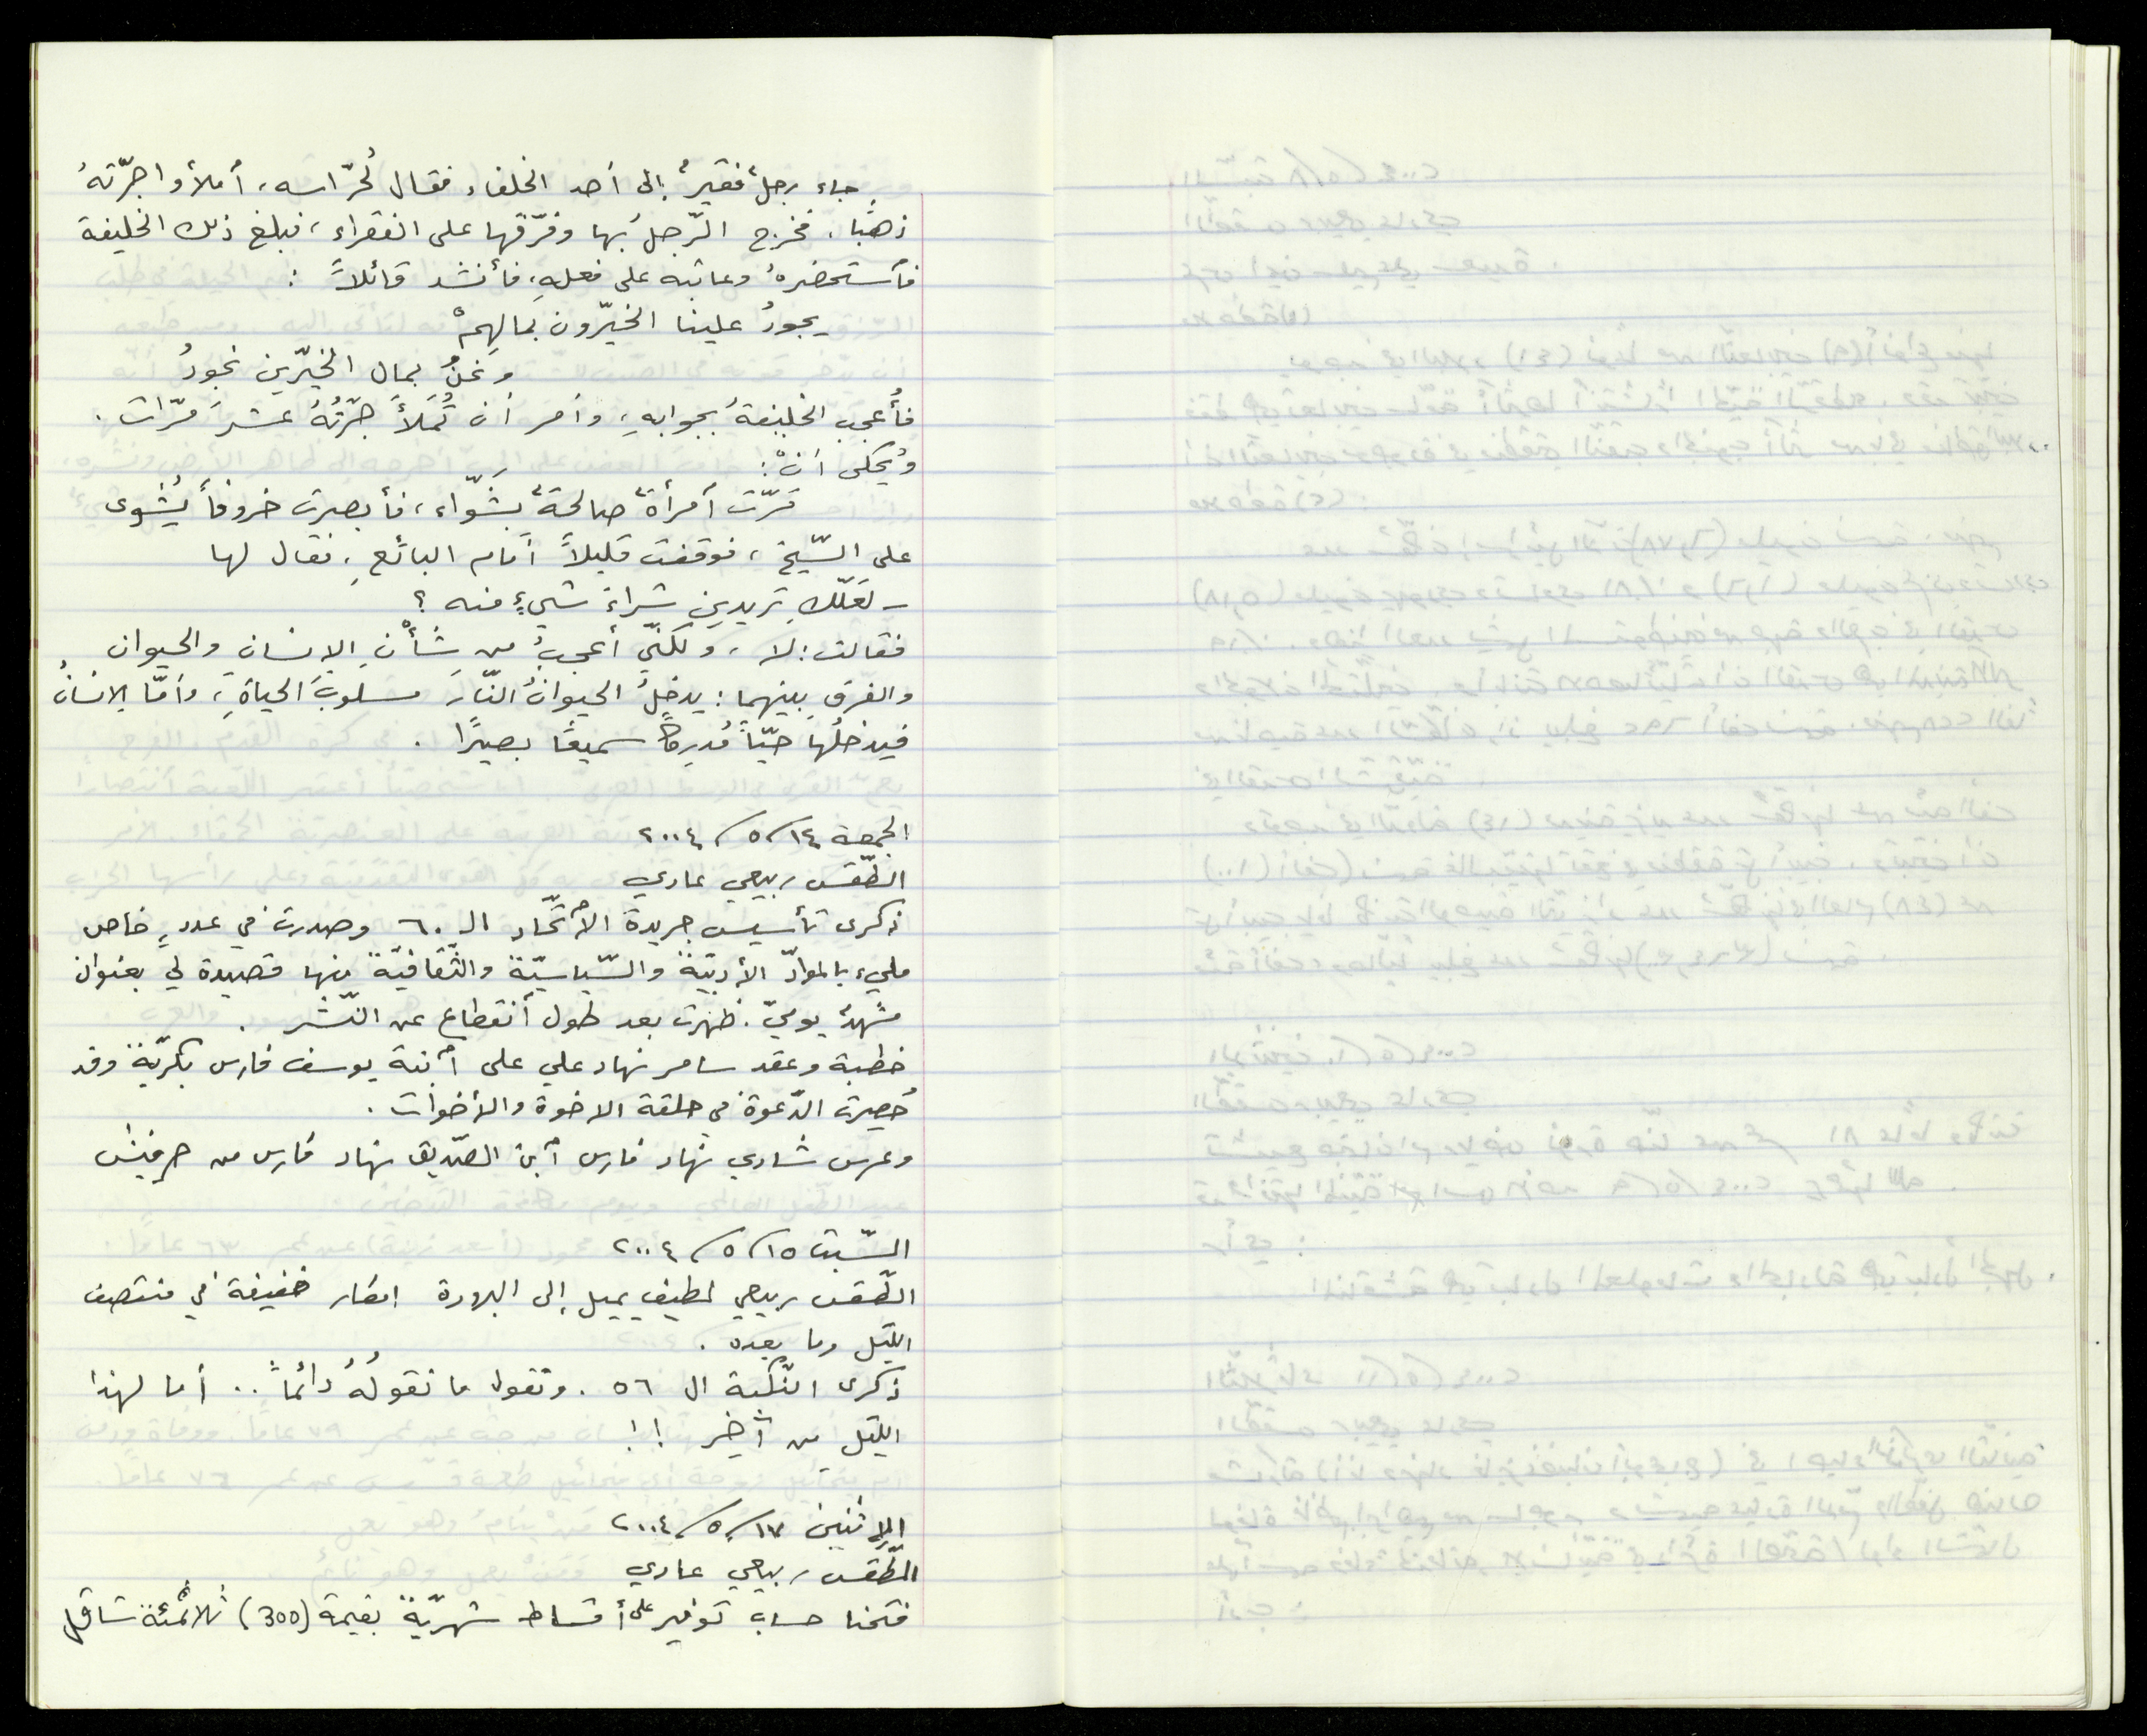 جاء رجلٌ فقيرٌ إلى أحد الخلفاء فقال لحُرّاسه، أملأوا جرّتهُ
ذهبًا، فخرج الرّجلُ بها وفرّقها على الفقراء، فبلغ ذلك الخليفة
فاستحضرهُ وعاتبه على فعلهِ، فأنشد قائلاً :
يجودُ علينا الخيّرون بمالهِمْ
ونحنُ بمال الخيّرين نجودُ
فأُعجبَ الخليفةُ بجوابهِ، وأمر أن تُملأَ جرّتُهُ عشرَ مرّات .
ويُحكى أنْ :
مَرّت امرأةٌ صالحةٌ بشَوّاء، فأبصرت خروفاً يُشوى
على السّيخ، فوقفت قليلاً أمام البائعِ، فقال لها
- لعَلّكِ تريدين شراءَ شيءٍ منه ؟
فقالت: لا، ولكنّي أعجبُ من شأنِ الإنسانِ والحيوانِ
والفرقِ بينهما: يدخلُ الحيوانُ النّارَ مسلوبَ الحياةِ، وأمّا الإنسانُ
فيدخلُها حيّاً مُدركاً سميعًا بصيرًا .
الجمعة ١٤/٥/٢٠٠٤
الطّقس ربيعي عادي
ذكرى تأسيس جريدة الاتّحاد الـ ٦٠ وصدرت في عددٍ خاص
مليء بالموادّ الأدبيّة والسّياسيّة والثّقافيّة منها قصيدة لي بعنوان
مشهدٌ يوميّ . ظهرت بعد طول انقطاع عن النّشر .
خطبة وعقد سامر نهاد علي على ابنة يوسف فارس بكريّة وقد
حُصِرت الدّعوة في حلقة الاخوة والأخوات .
وعرس شادي نهاد فارس ابن الصّديق نهاد فارس من حرفيش
السّبت ١٥/٥/٢٠٠٤
الطّقس ربيعي لطيف يميل إلى البرودة امطار خفيفة في منتصف
الليل وما بعده .
ذكرى النّكبة الـ ٥٦ . ونقول ما نقولهُ دائماً .. أما لهذا
الليل من آخِر !!
الإثنين ١٧/٥/٢٠٠٤
الطّقس ربيعي عادي
فتحنا حساب توفير على أقساط شهريّة بقيمة (300) ثلاثمئة شاقل